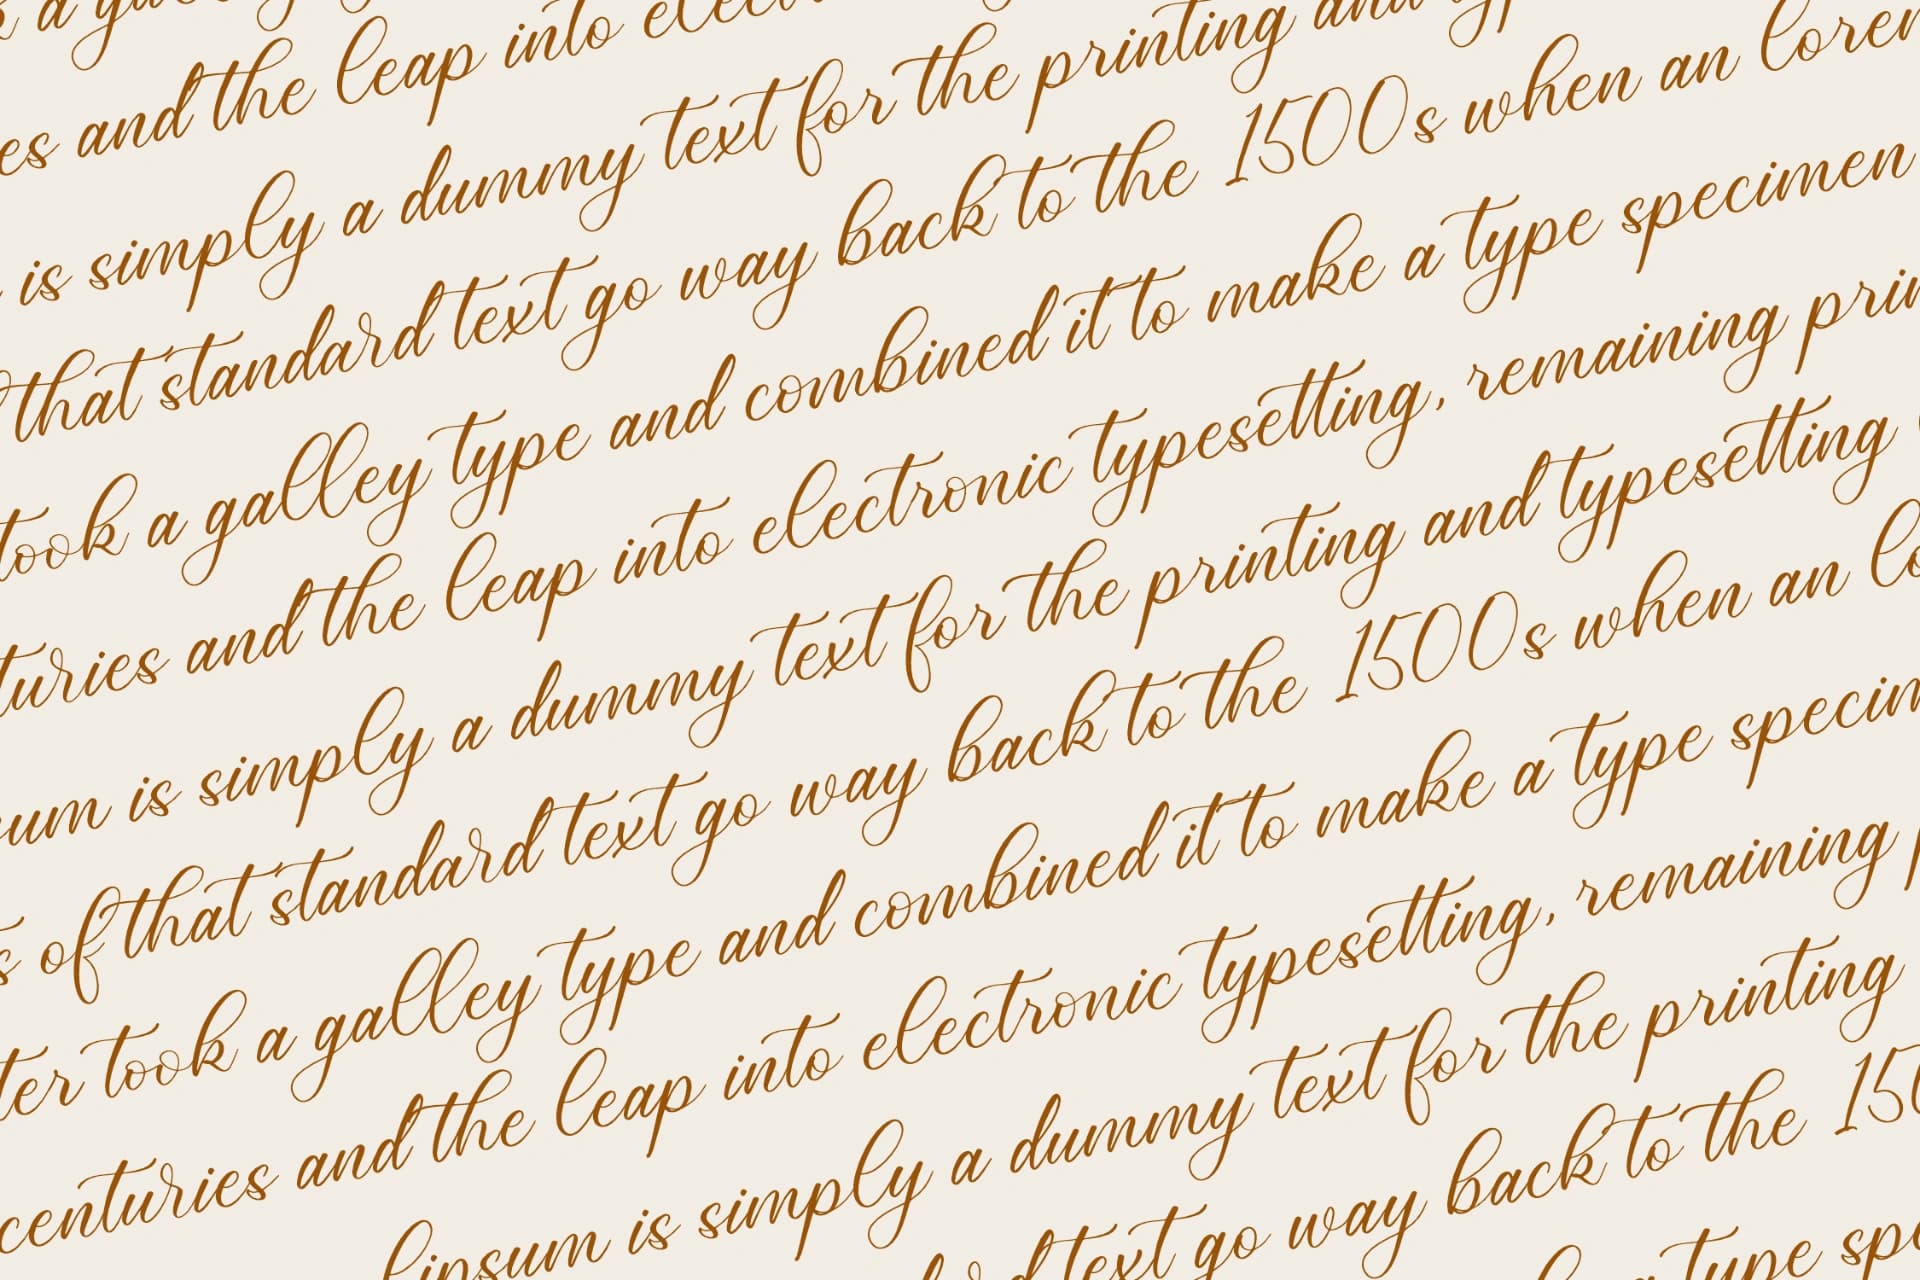 a
es and the leap into elec
is simply a dummy text for the printing and typ
that standard text go way back to the 1500s when an lorem
took a galley type and combined it to make a type specimen
turies and the leap into electronic typesetting, remaining prin
sum is simply a dummy text for the printing and typesetting
s of that standard text go way back to the 1500s when an lo
ter took a galley type and combined it to make a type specim
centuries and the leap into electronic typesetting, remaining
ipsum is simply a dummy text for the printing
d text go way back to the 150
a type spe